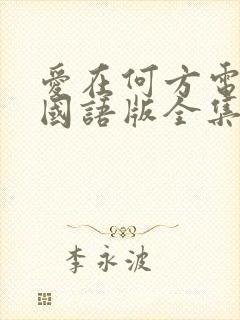 愛在何方電
國語版全集
李永波